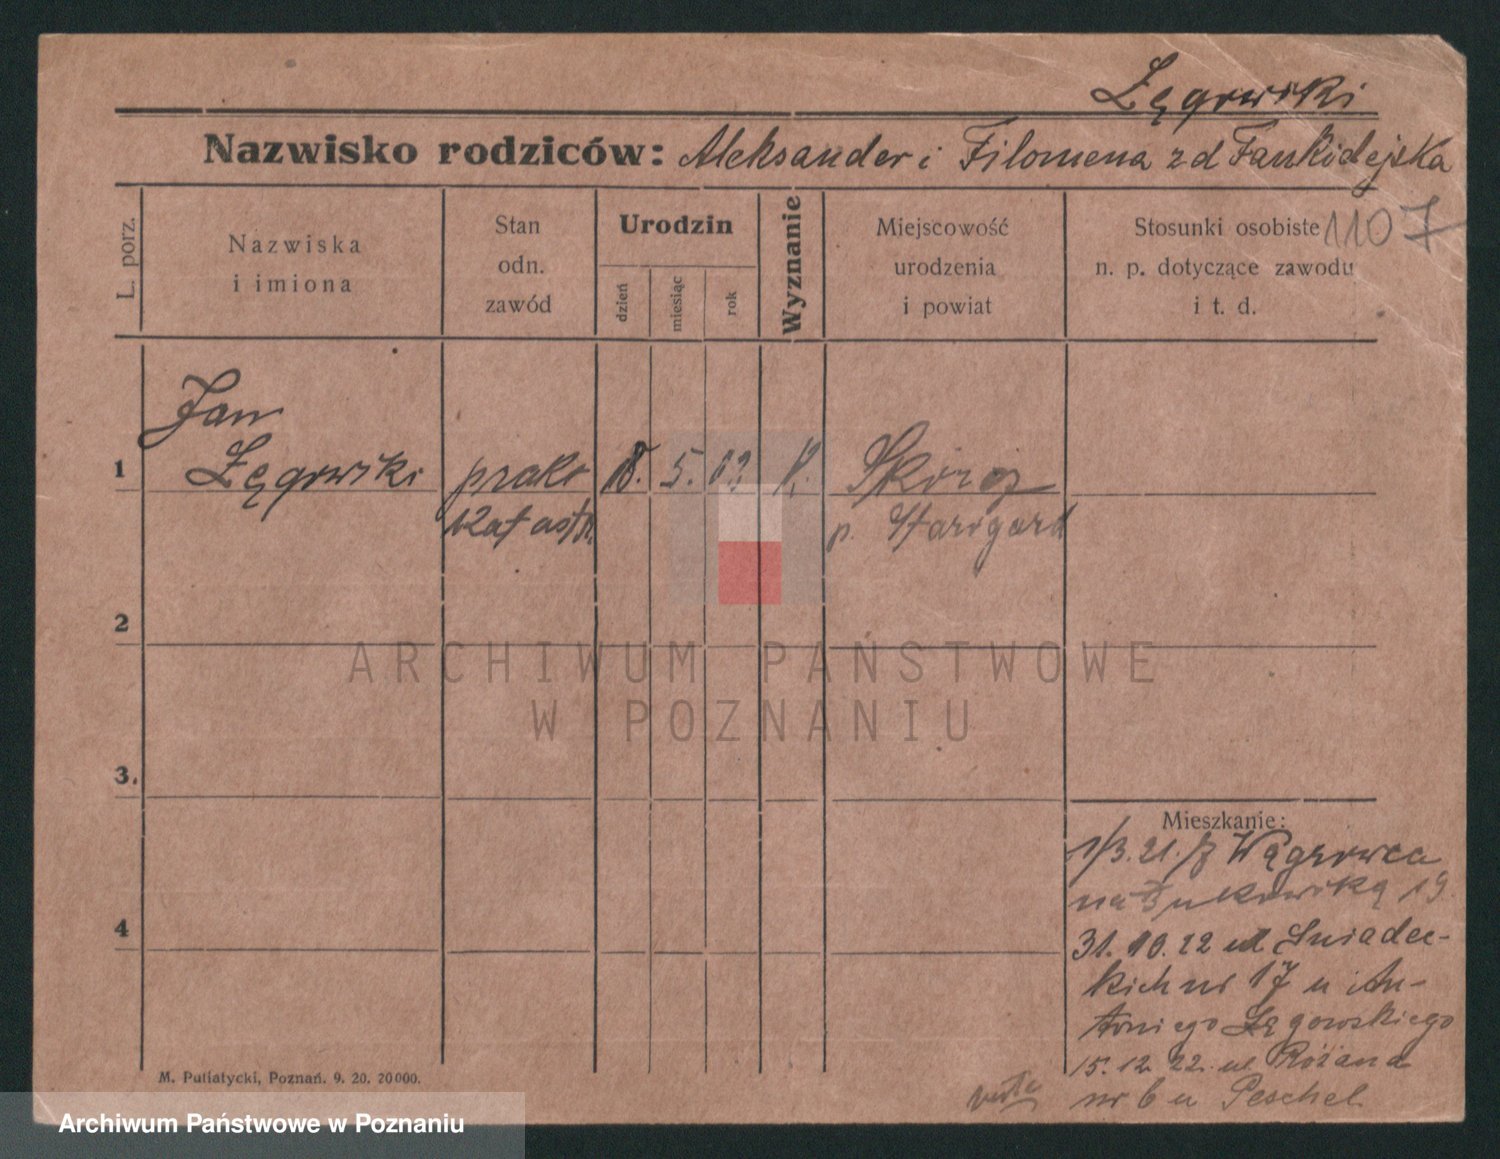 Łęgowski
Nazwisko rodziców: Aleksander i Filomena z d Fankidejska
1107
L. porz.
Nazwiska
i imiona
Stan
odn.
zawód
Urodzin
dzień
miesiąc
rok
Wyznanie
Miejscowość
urodzenia
i powiat
Stosunki osobiste
n. p. dotyczące zawodu
i t. d.
Jan
1 Łęgowski prakt 18. 5. 03 K. Skórcz
katastr. p. Starogard
2
3.
4
Mieszkanie:
1/3. 21. z Wągrowca
na 19
31. 10. 22 ul Śniadec-
kich nr 17 u An-
toniego Łęgowskiego
15. 12. 22. ul Różana
nr 6 u Peschel
verte
M. Putiatycki, Poznań. 9. 20. 20000.
ARCHIWUM PAŃSTWOWE
W POZNANIU
Archiwum Państwowe w Poznaniu